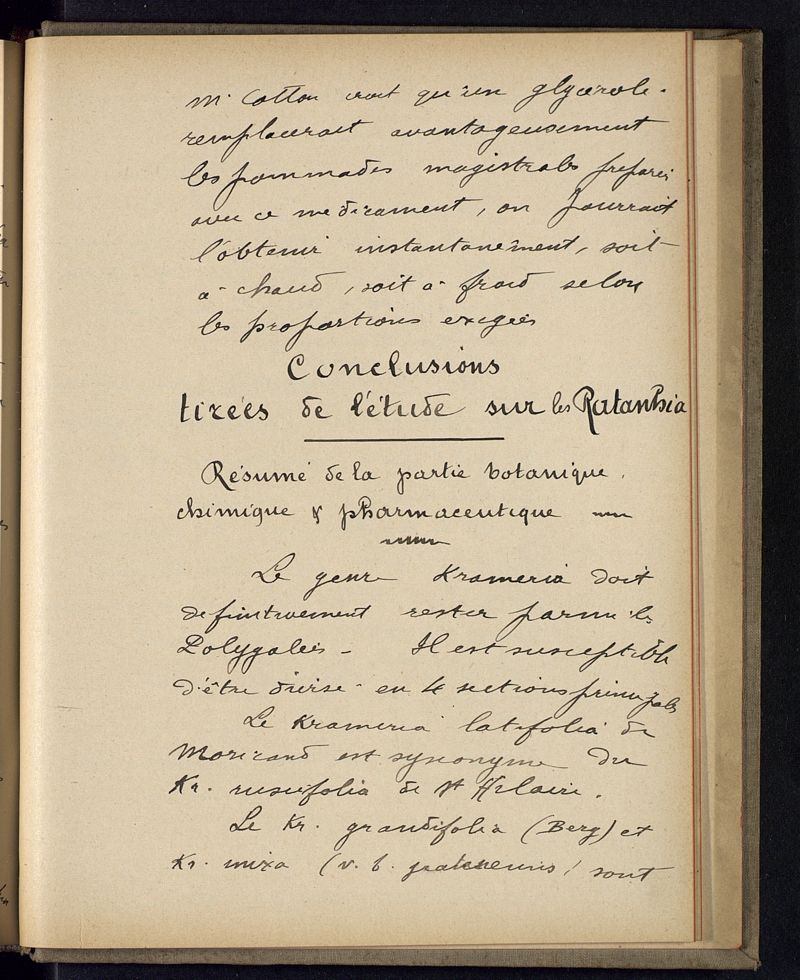 Mr Cotton croit qu'un glycérolé
remplacerait avantageusement
les pommades magistrales préparées
avec ce médicament, on pourrait
l'obtenir instantanément, soit
à chaud, soit à froid selon
les proportions exigées
Conclusions
tirées de l'étude sur les Ratanhia
Résumé de la partie botanique,
chimique & pharmaceutique
Le genre Krameria doit
définitivement rester parmi les
Polygalées - Il est susceptible
d'être divisé en 4 sections principales
Le Krameria latifolia de
Moricand est synonyme du
Kr. ruscifolia de St Hilaire.
Le Kr. grandifolia (Berg) et
Kr. ixina (v. b. ) sont